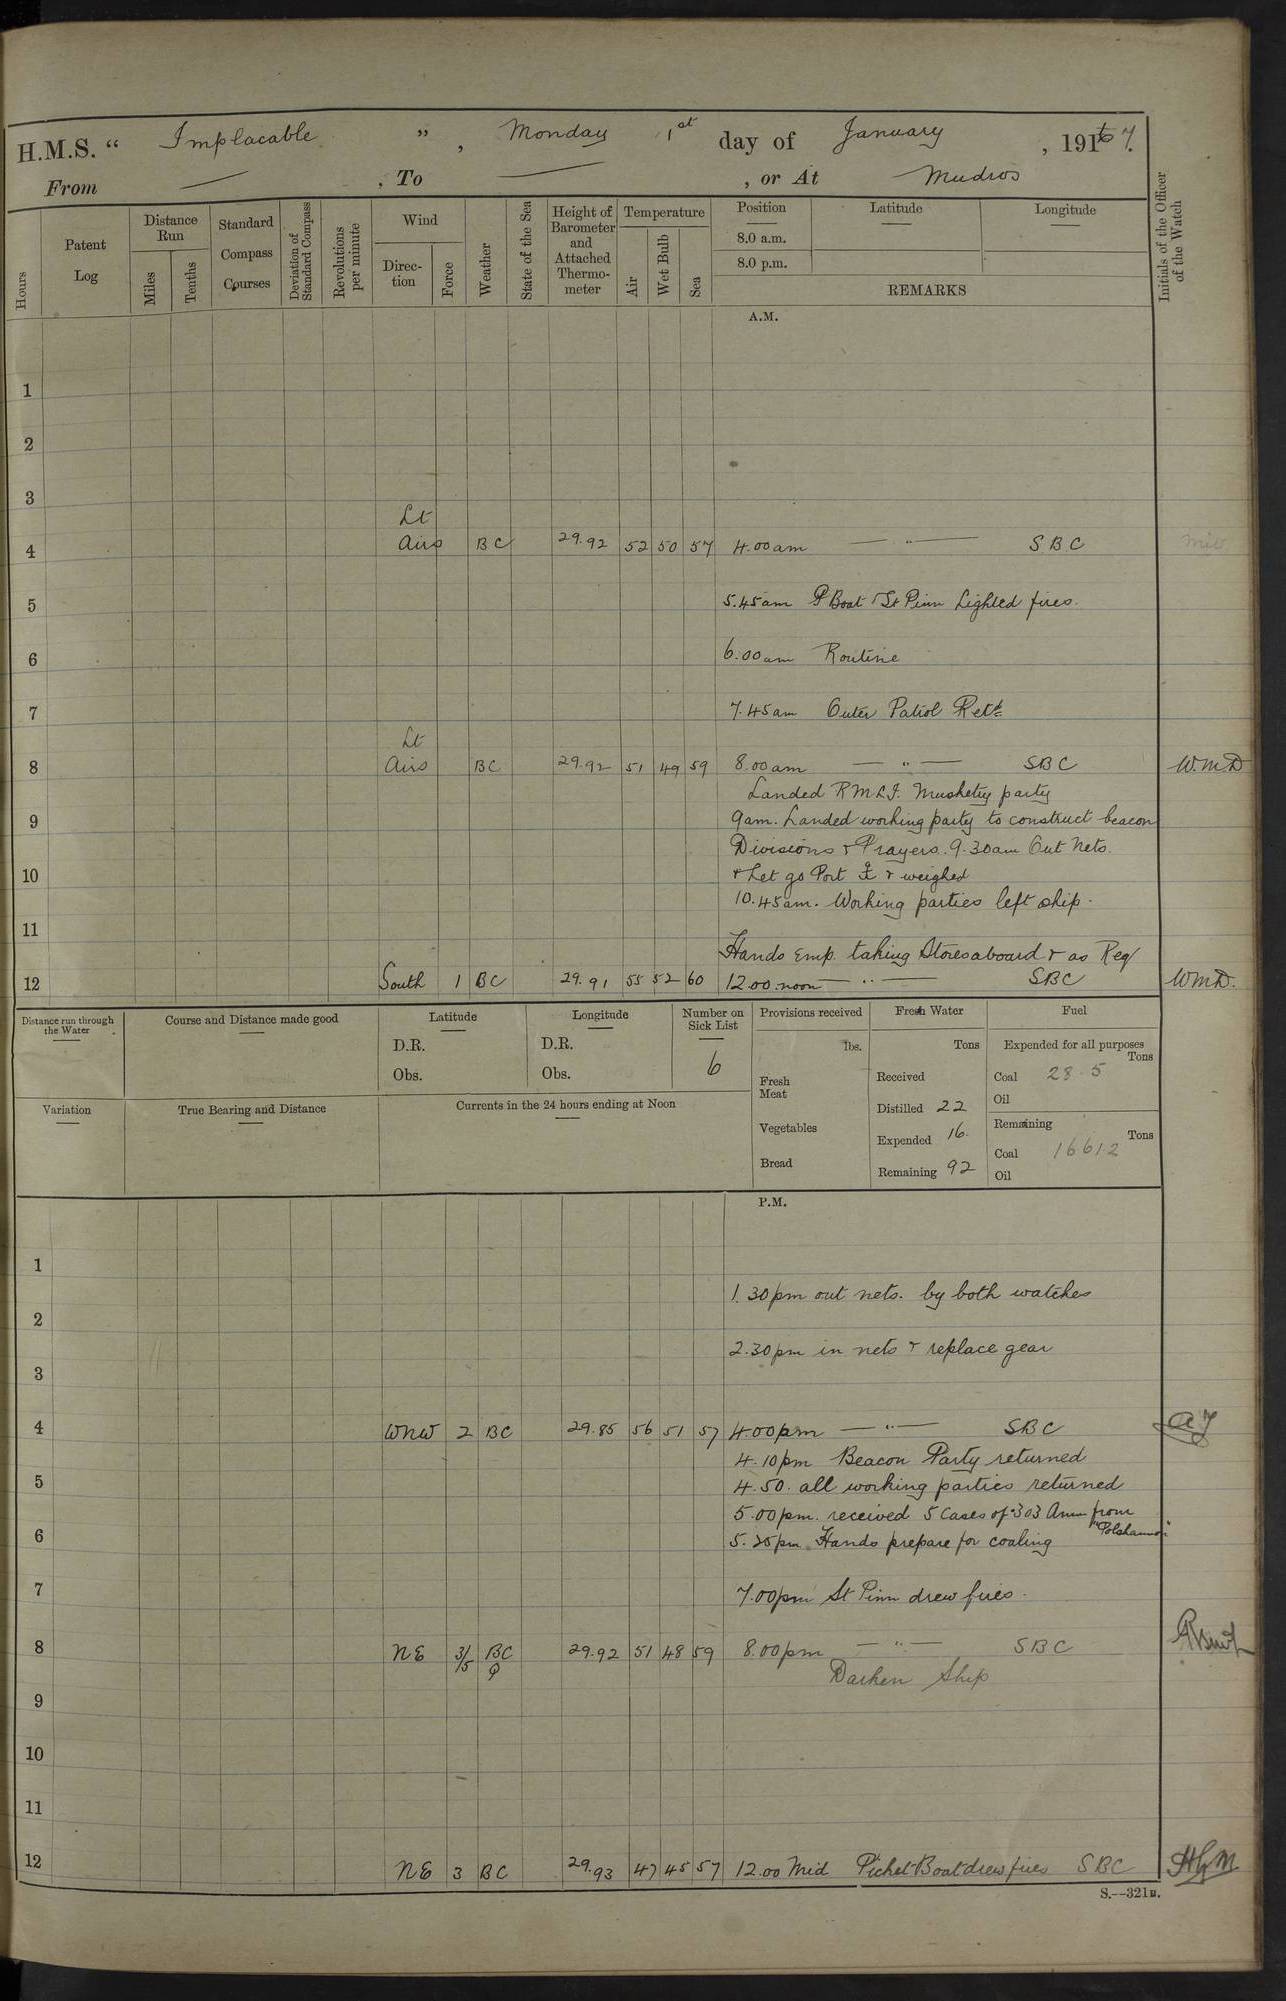 H.M.S. “ Implacable ”, Monday 1st day of January, 1917.
From — , To — , or At Mudros
Hours
Patent Log
Distance Run
Miles
Tenths
Standard Compass Courses
Deviation of Standard Compass
Revolutions per minute
Wind
Direction
Force
Weather
State of the Sea
Height of Barometer and Attached Thermometer
Temperature
Air
Wet Bulb
Sea
Position
8.0 a.m.
8.0 p.m.
Latitude
Longitude
REMARKS
Initials of the Officer of the Watch
A.M.
1
2
3
4 Lt Airs BC 29.92 52 50 57 4.00am — " — SBC
5 5.45am P Boat & St Pinn Lighted fires.
6 6.00am Routine
7 7.45am Outer Patrol Retd
8 Lt Airs BC 29.92 51 49 59 8.00am — " — SBC W.M.D
Landed RMLI. Musketry party
9 9am. Landed working party to construct beacon
Divisions & Prayers. 9.30am Out Nets.
10 & Let go Port ⚓ & weighed
10.45am. Working parties left ship.
11
Hands Emp. taking Stores aboard & as Req
12 South 1 BC 29.91 55 52 60 12.00 noon — " — SBC WMD.
Distance run through the Water
Course and Distance made good
Latitude
D.R.
Obs.
Longitude
D.R.
Obs.
Number on Sick List
6
Provisions received
lbs.
Fresh Meat
Vegetables
Bread
Fresh Water
Tons
Received
Distilled 22
Expended 16.
Remaining 92
Fuel
Expended for all purposes
Tons
Coal 28.5
Oil
Remaining
Tons
Coal 1661.2
Oil
Variation
True Bearing and Distance
Currents in the 24 hours ending at Noon
P.M.
1
1.30pm out nets. by both watches
2
2.30pm in nets & replace gear
3
4 WNW 2 BC 29.85 56 51 57 4.00pm — " — SBC
4.10pm Beacon Party returned
5 4.50. all working parties returned
5.00pm. received 5 Cases of .303 Amm from
6 5.25pm Hands prepare for coaling
7 7.00pm St Pinn drew fires.
8 NE 3/5 BC Q 29.92 51 48 59 8.00pm — " — SBC
Darken Ship
9
10
11
12 NE 3 BC 29.93 47 45 57 12.00 Mid Picket Boat drew fires SBC
S.—321B.